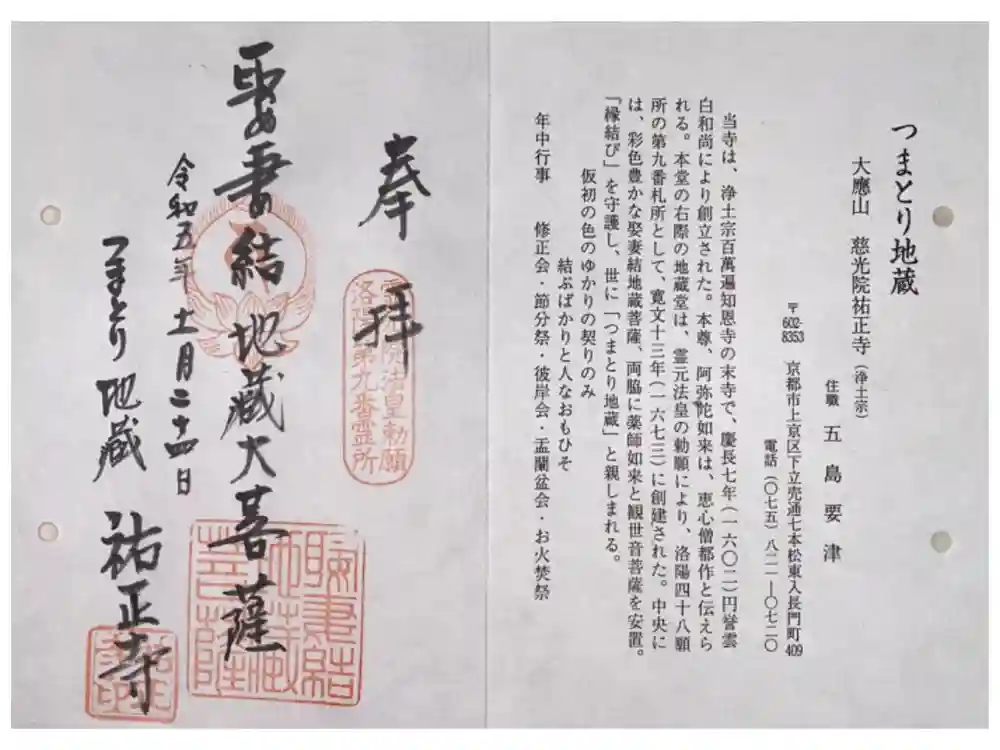 つまとり地蔵
大應山　慈光院祐正寺（浄土宗）
住職　五島要津
〒602-8353　京都市上京区下立売通七本松東入長門町409
電話（〇七五）八二一―〇七二〇
当寺は、浄土宗百萬遍知恩寺の末寺で、慶長七年（一六〇二）円誉雲
白和尚により創立された。本尊、阿弥陀如来は、恵心僧都作と伝えら
れる。本堂の右際の地蔵堂は、霊元法皇の勅願により、洛陽四十八願
所の第九番札所として、寛文十三年（一六七三）に創建された。中央に
は、彩色豊かな娶妻結地蔵菩薩、両脇に薬師如来と観世音菩薩を安置。
「縁結び」を守護し、世に「つまとり地蔵」と親しまれる。
仮初の色のゆかりの契りのみ
結ぶばかりと人なおもひそ
年中行事　修正会・節分祭・彼岸会・盂蘭盆会・お火焚祭
奉拝
法皇勅願
第九番霊所
妻結地蔵大菩薩
令和五年十一月二十四日
つまとり地蔵　祐正寺